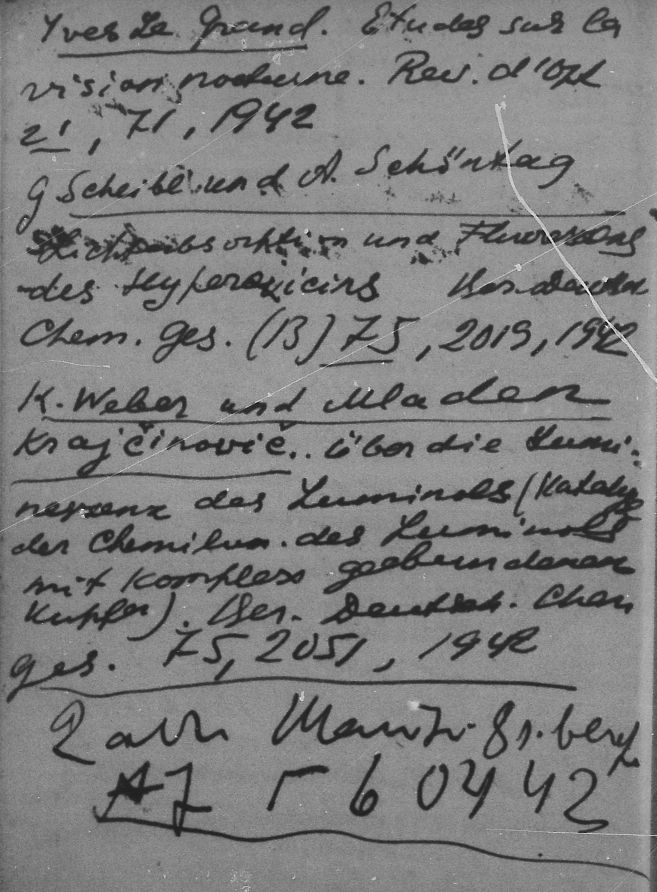 Yves Le Grand. Etudes sur la
vision nocturne. Rev. d'Opt
21, 71, 1942
G Scheibe und A. Schöntag
Lichtabsorktion und Fluoreszenz
des Hyperizicins Ber. Deutsch
Chem. Ges. (B) 75, 2019, 1942
K. Weber und Mladen
Krajčinovič.. über die Lumi-
neszenz des Luminols (Katalyse
der Chemilum. des Luminols
mit Komplex gebundenem
Kupfer). Ber. Deutsch. Chem
Ges. 75, 2051, 1942
60442